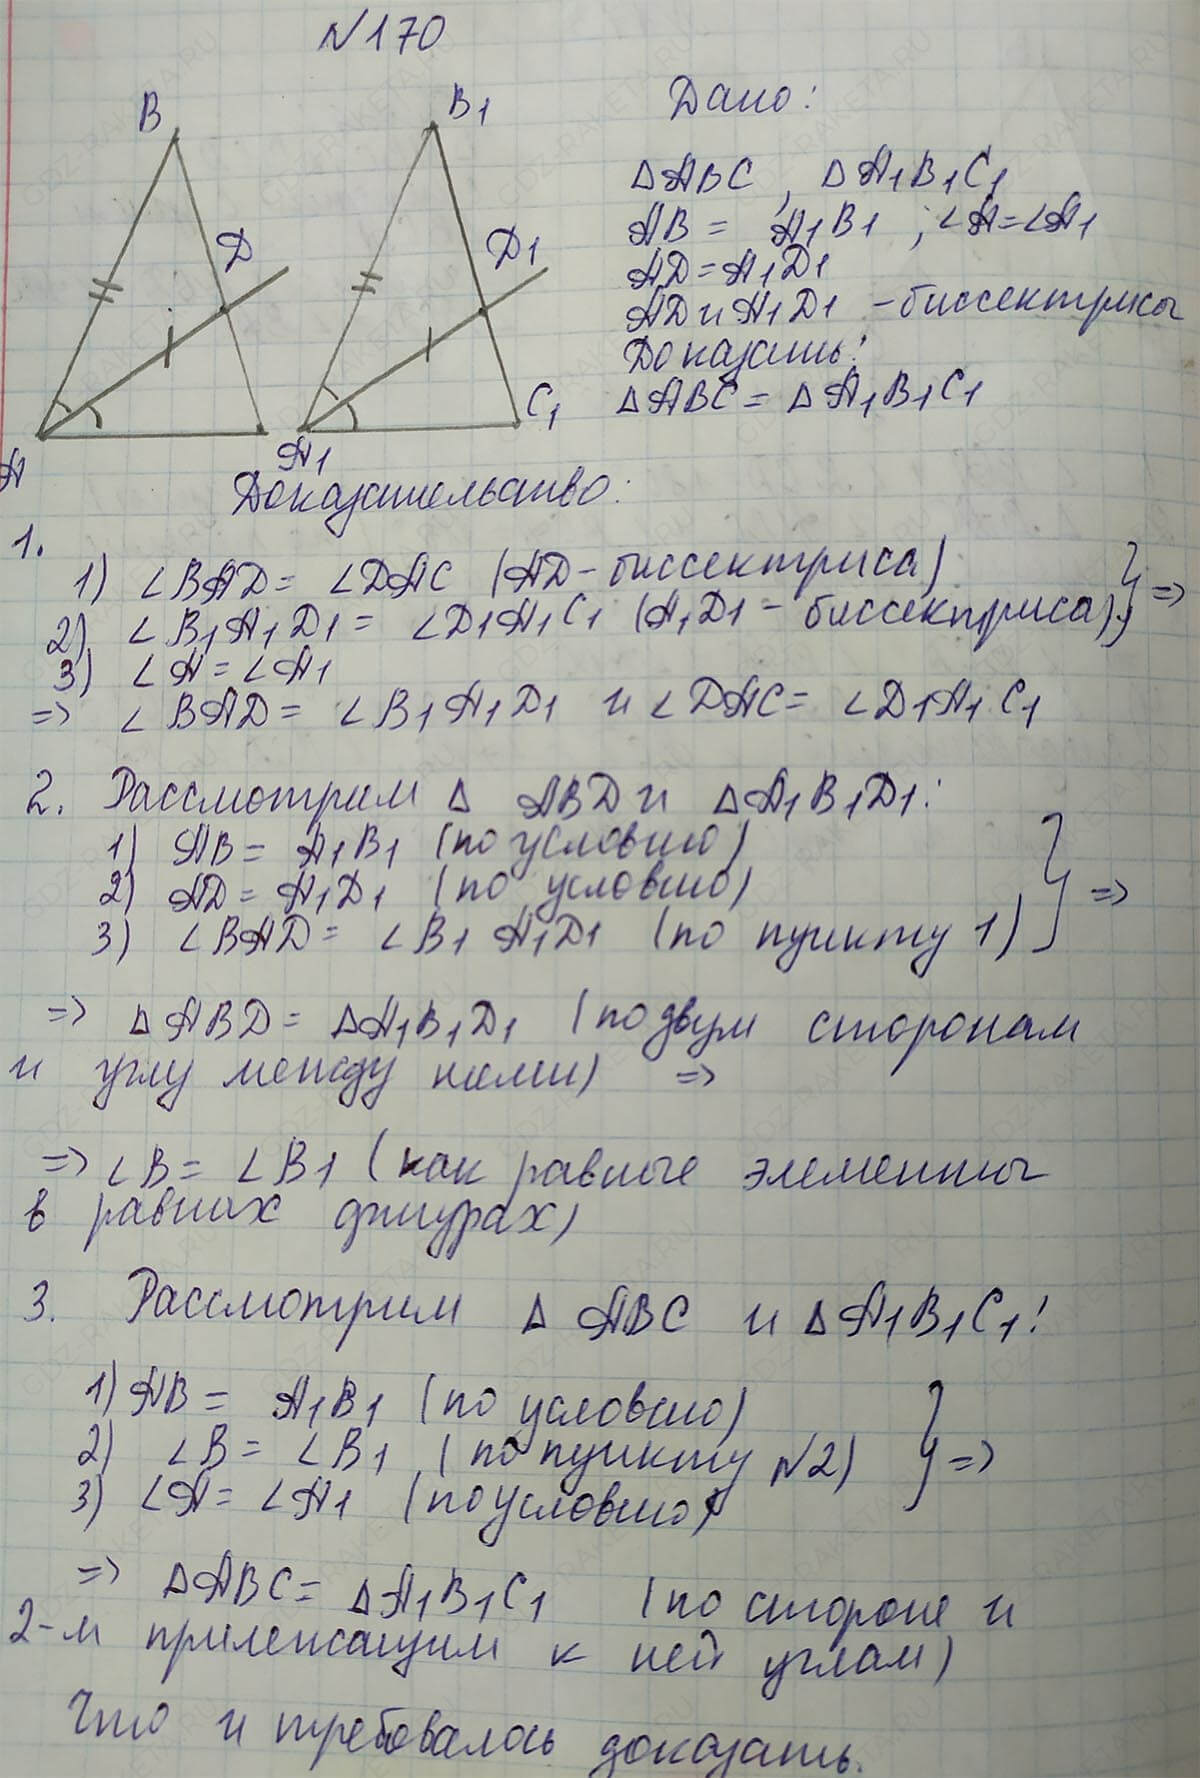 №170
B
B1
Дано:
△ABC, △A1B1C1
AB = A1B1, ∠A=∠A1
AD=A1D1
AD и A1D1 - биссектрисы
Доказать:
△ABC = △A1B1C1
D
D1
C1
A
A1
Доказательство:
1.
1) ∠BAD = ∠DAC (AD - биссектриса)
2) ∠B1A1D1 = ∠D1A1C1 (A1D1 - биссектриса) } =>
3) ∠A = ∠A1
=> ∠BAD = ∠B1A1D1 и ∠DAC = ∠D1A1C1
2. Рассмотрим △ ABD и △A1B1D1:
1) AB = A1B1 (по условию)
2) AD = A1D1 (по условию) } =>
3) ∠BAD = ∠B1A1D1 (по пункту 1)
=> △ABD = △A1B1D1 (по двум сторонам
и углу между ними) =>
=> ∠B = ∠B1 (как равные элементы
в равных фигурах)
3. Рассмотрим △ ABC и △A1B1C1:
1) AB = A1B1 (по условию)
2) ∠B = ∠B1 (по пункту №2) } =>
3) ∠A = ∠A1 (по условию)
=> △ABC = △A1B1C1 (по стороне и
2-м прилежащим к ней углам)
Что и требовалось доказать.